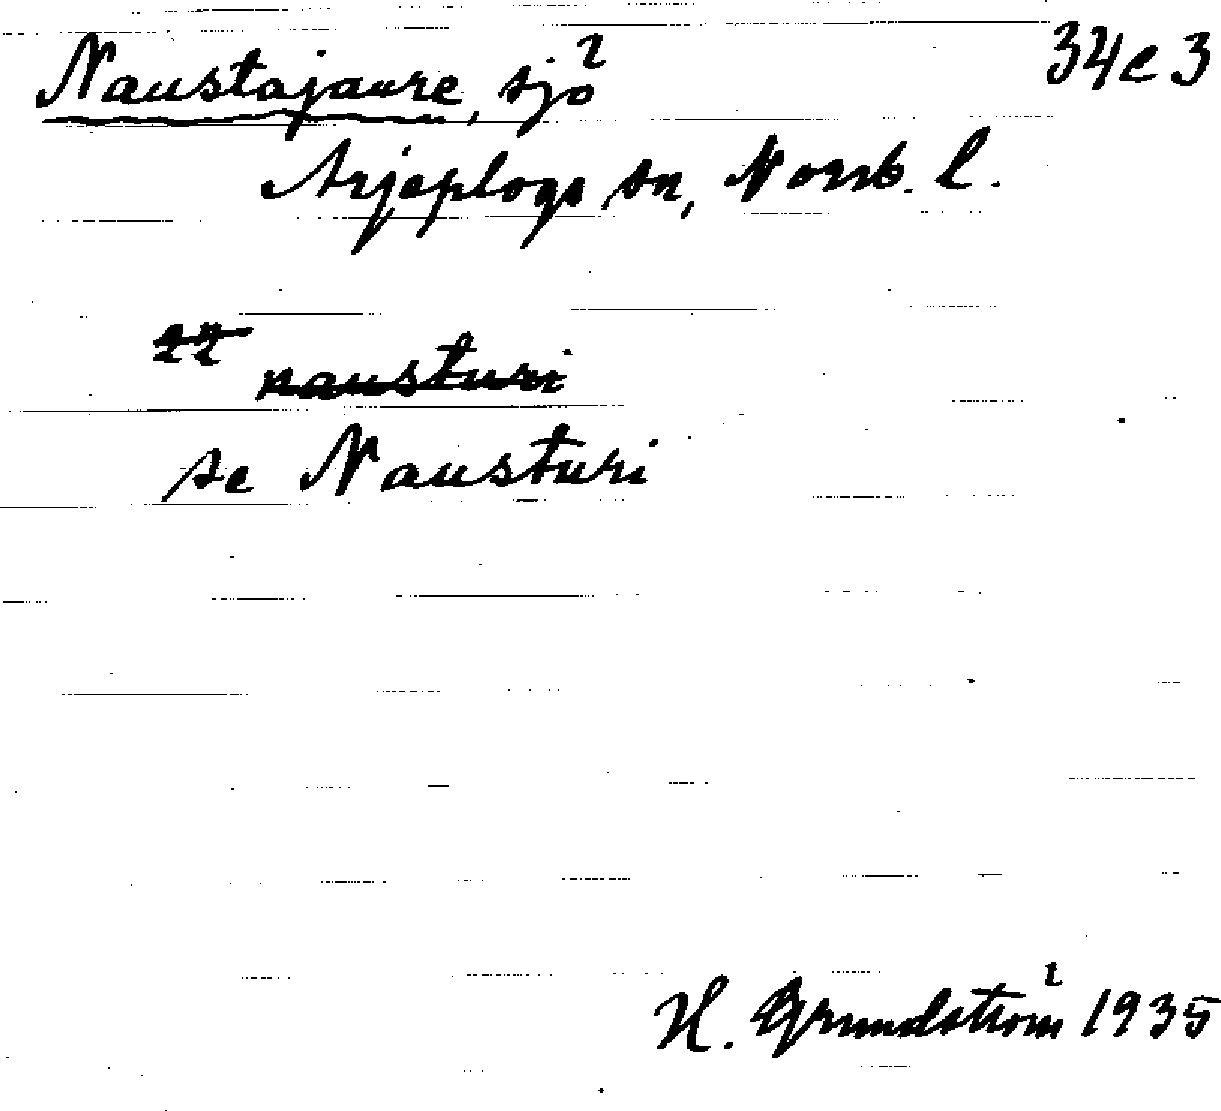 Naustajaure, sjö 34c3
Arjeplogs sn, Norrb. l.
nausturi
se Nausturi
H. Grundström 1935